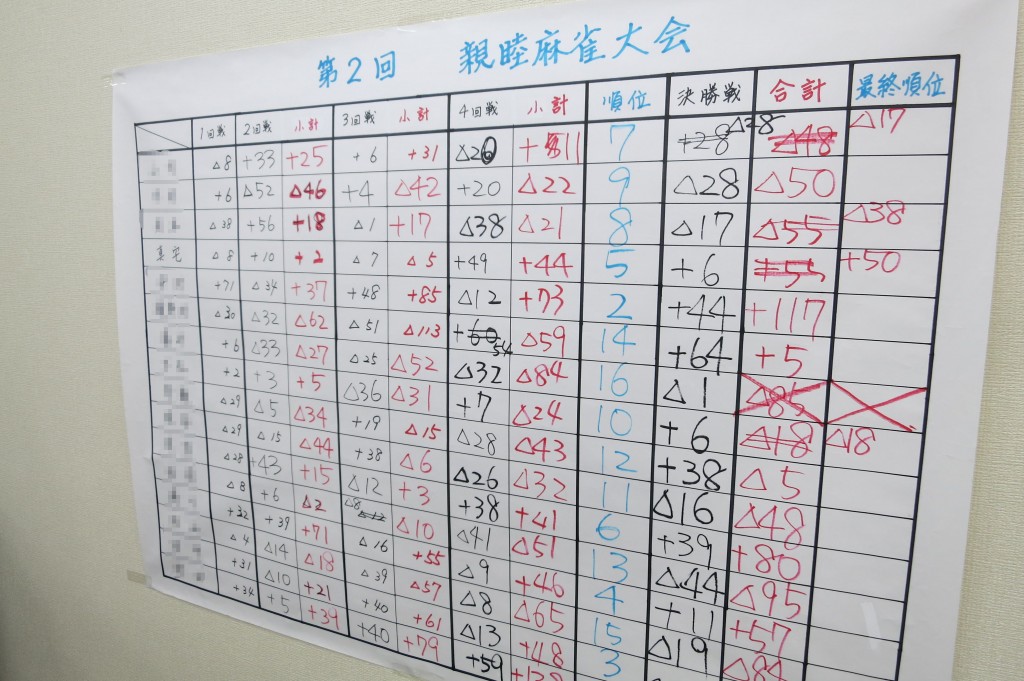 第2回 親睦麻雀大会
1回戦 2回戦 小計 3回戦 小計 4回戦 小計 順位 決勝戦 合計 最終順位
△8 +33 +25 +6 +31 △20 +11 7 +28 △28 △48 △17
+6 △52 △46 +4 △42 +20 △22 9 △28 △50
△38 +56 +18 △1 +17 △38 △21 8 △17 △55 △38
△8 +10 +2 △7 △5 +49 +44 5 +6 +55 +50
+71 △34 +37 +48 +85 △12 +73 2 +44 +117
△30 △32 △62 △51 △113 +60 54 △59 14 +64 +5
+6 △33 △27 △25 △52 △32 △84 16 △1 △85
+2 +3 +5 △36 △31 +7 △24 10 +6 △18 △18
△29 △5 △34 +19 △15 △28 △43 12 +38 △5
△29 △15 △44 +38 △6 △26 △32 11 △16 △48
△28 +43 +15 △12 +3 +38 +41 6 +39 +80
△8 +6 △2 △8 △12 △10 △41 △51 13 △44 △95
+32 +39 +71 △16 +55 △9 +46 4 +11 +57
△4 △14 △18 △39 △57 △8 △65 15 △19 △84
+31 △10 +21 +40 +61 △13 +48 3
+34 +5 +39 +40 +79 +59